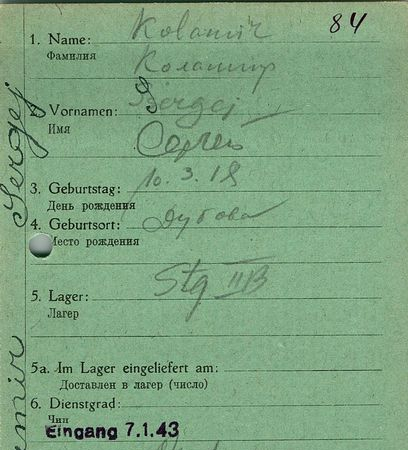 84
1. Name: Kolamir
Фамилия Коламир
2. Vornamen: Sergej
Имя Сергей
3. Geburtstag: 10.3.18
День рождения
4. Geburtsort: Дубова
Место рождения
5. Lager: Stg IIIB
Лагер
5a. Im Lager eingeliefert am:
Доставлен в лагер (число)
6. Dienstgrad:
Чин
Eingang 7.1.43
Sergej